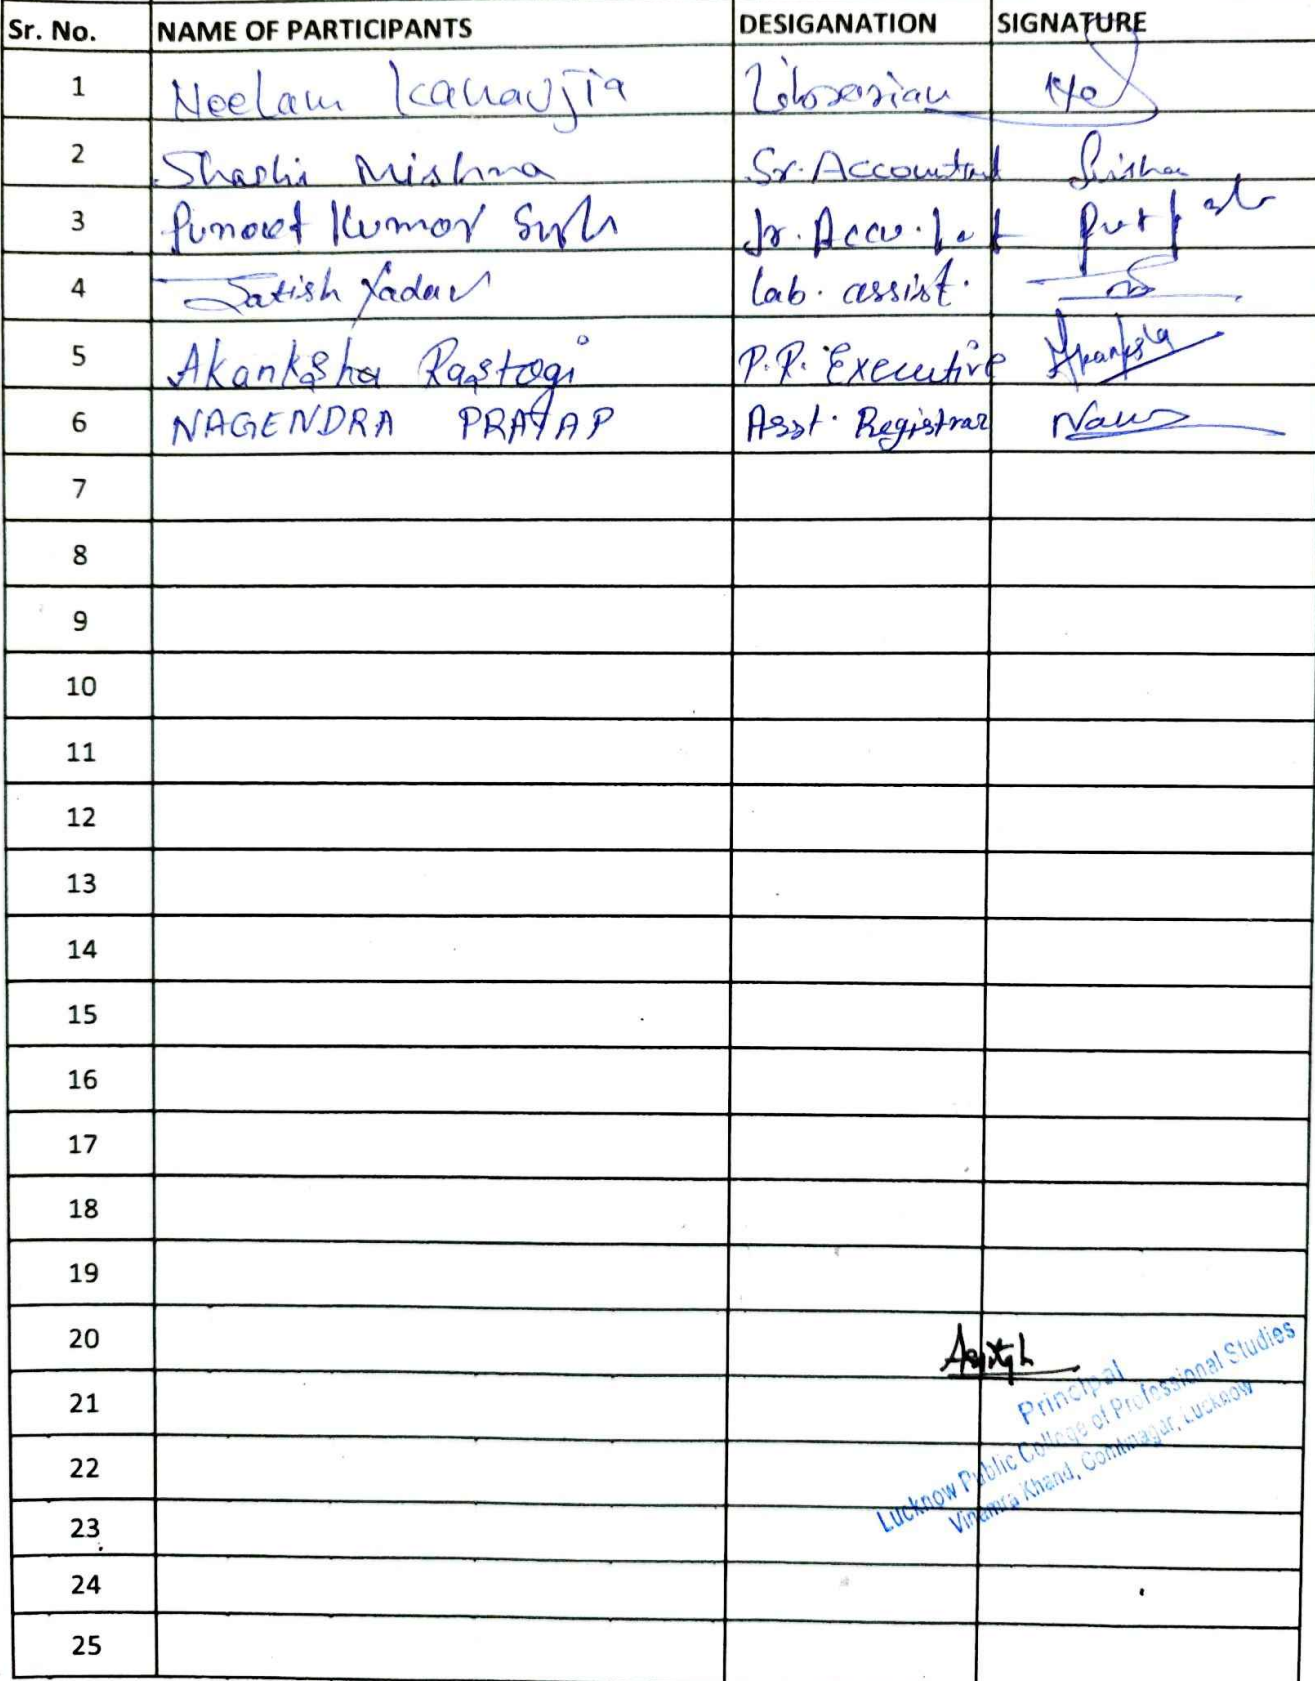 Sr. No. NAME OF PARTICIPANTS DESIGANATION SIGNATURE
1 Neelam Kanaujia Librarian
2 Shashi Mishra Sr. Accountant
3 Puneet Kumar Singh Jr. Accountant
4 Satish Yadav Lab. assist.
5 Akanksha Rastogi P.R. Executive Akanksha
6 NAGENDRA PRATAP Asst. Registrar
7
8
9
10
11
12
13
14
15
16
17
18
19
20
21
22
23
24
25
Principal
Lucknow Public College of Professional Studies
Vinamra Khand, Gomtinagar, Lucknow